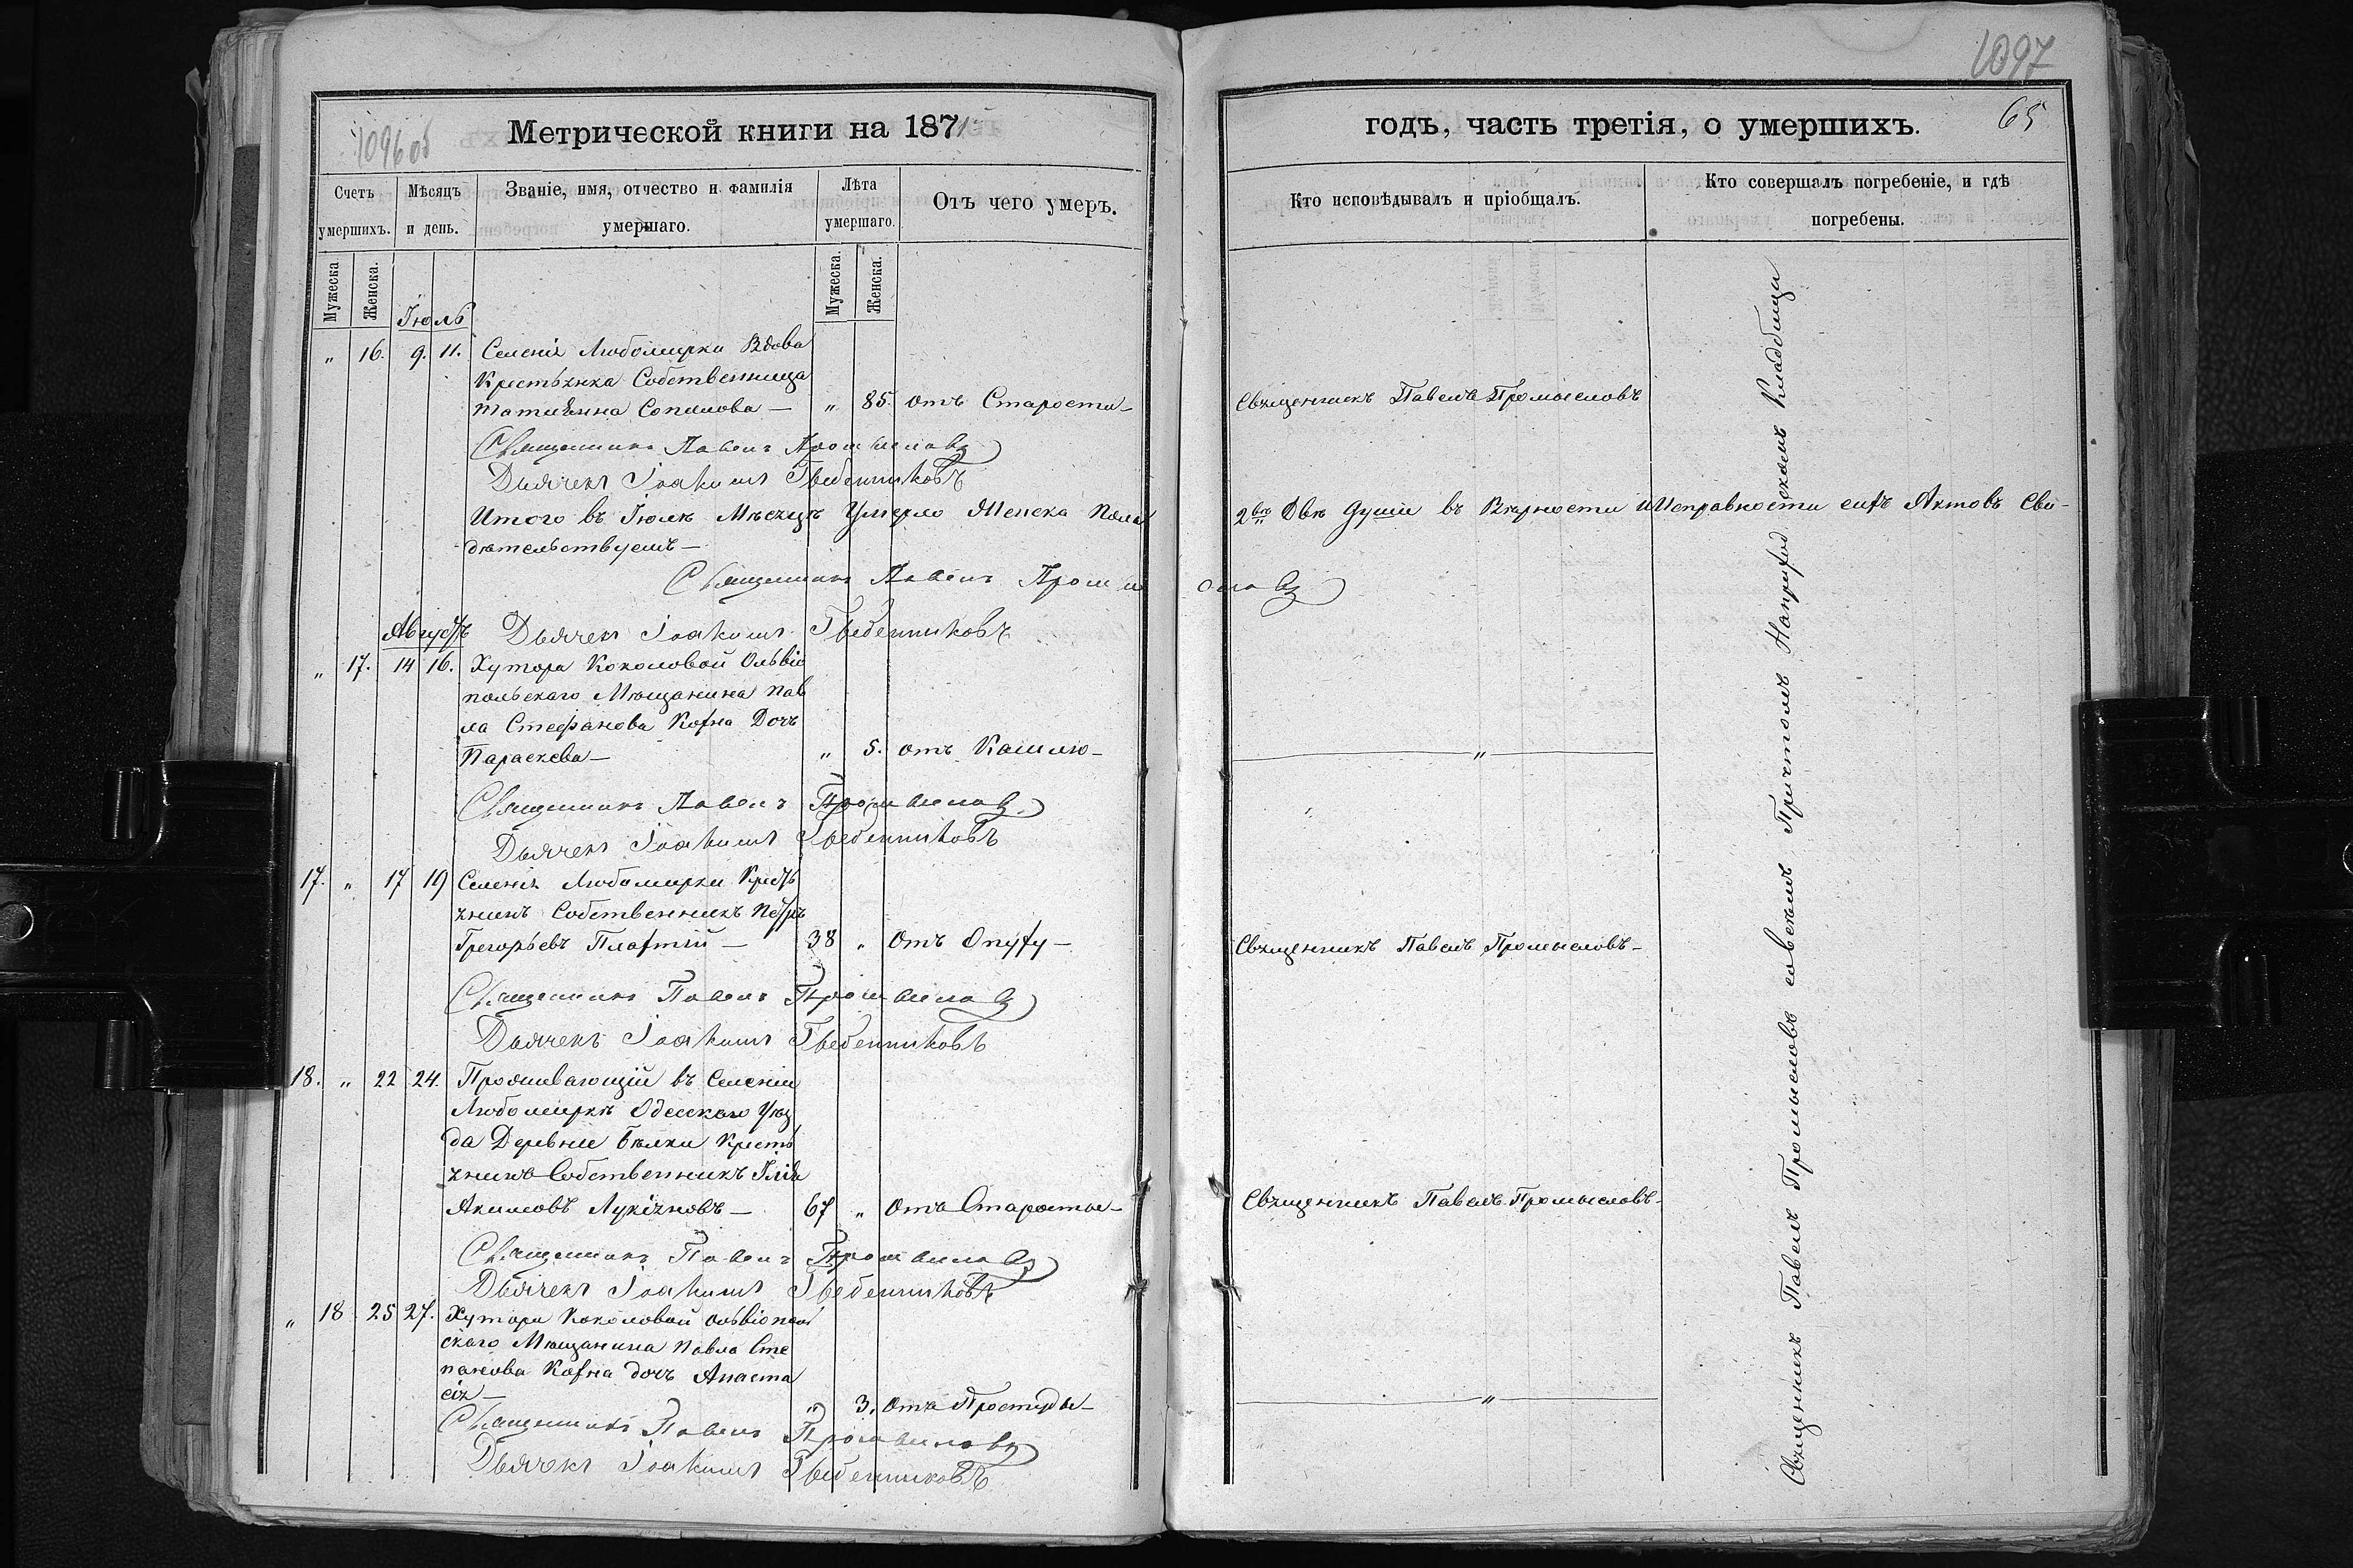 1097
1096 об
65
Метрической книги на 1871
годъ, часть третія, о умершихъ.
Счетъ умершихъ.
Мѣсяцъ и день.
Званіе, имя, отчество и фамилія умершаго.
Лѣта умершаго.
Отъ чего умеръ.
Кто исповѣдывалъ и пріобщалъ.
Кто совершалъ погребеніе, и гдѣ погребены.
Мужеска
Женска.
Мужеска.
Женска.
Іюль
" 16. 9. 11. Селенія Любомирки Вдова
Крестьянка Собственница
Татіянна — " 85. отъ Старости — Священникъ Павелъ Промысловъ
Священникъ Павелъ Промысловъ
Дьячекъ Іоакимъ Гребенниковъ
Итого въ Іюлѣ Мѣсяцѣ Умерло Женска Пола 2 Двѣ Души въ Вѣрности и Исправности сихъ Актовъ Сви-
дѣтельствуемъ —
Священникъ Павелъ Промысловъ
Августъ Дьячекъ Іоакимъ Гребенниковъ
" 17. 14 16. Хутора Коколовой Ольвіо
польскаго Мѣщанина Пав
ла Стефанова Кохна Дочь
Параскева — " 5. отъ Кашлю — "
Священникъ Павелъ Промысловъ
Дьячекъ Іоакимъ Гребенниковъ
17. " 17 19 Селенія Любомирки Кресть
янинъ Собственникъ Петръ
Григорьевъ Плахтій — 38 " Отъ Опуху — Священникъ Павелъ Промысловъ —
Священникъ Павелъ Промысловъ
Дьячекъ Іоакимъ Гребенниковъ
18. " 22 24. Проживающій въ Селеніи
Любомиркѣ Одесскаго Уѣз
да Деревни Бѣлки Кресть
янинъ Собственникъ Илія
Акимовъ Лукіяновъ — 67 " Отъ Старости — Священникъ Павелъ Промысловъ —
Священникъ Павелъ Промысловъ
Дьячекъ Іоакимъ Гребенниковъ
" 18 25 27. Хутора Коколовой Ольвіополь
скаго Мѣщанина Павла Сте
панова Кохна дочь Анаста
сія — " 3. Отъ Простуды — "
Священникъ Павелъ Промысловъ
Дьячекъ Іоакимъ Гребенниковъ
Священникъ Павелъ Промысловъ совсѣмъ Причтомъ Наприход скомъ Кладбищи